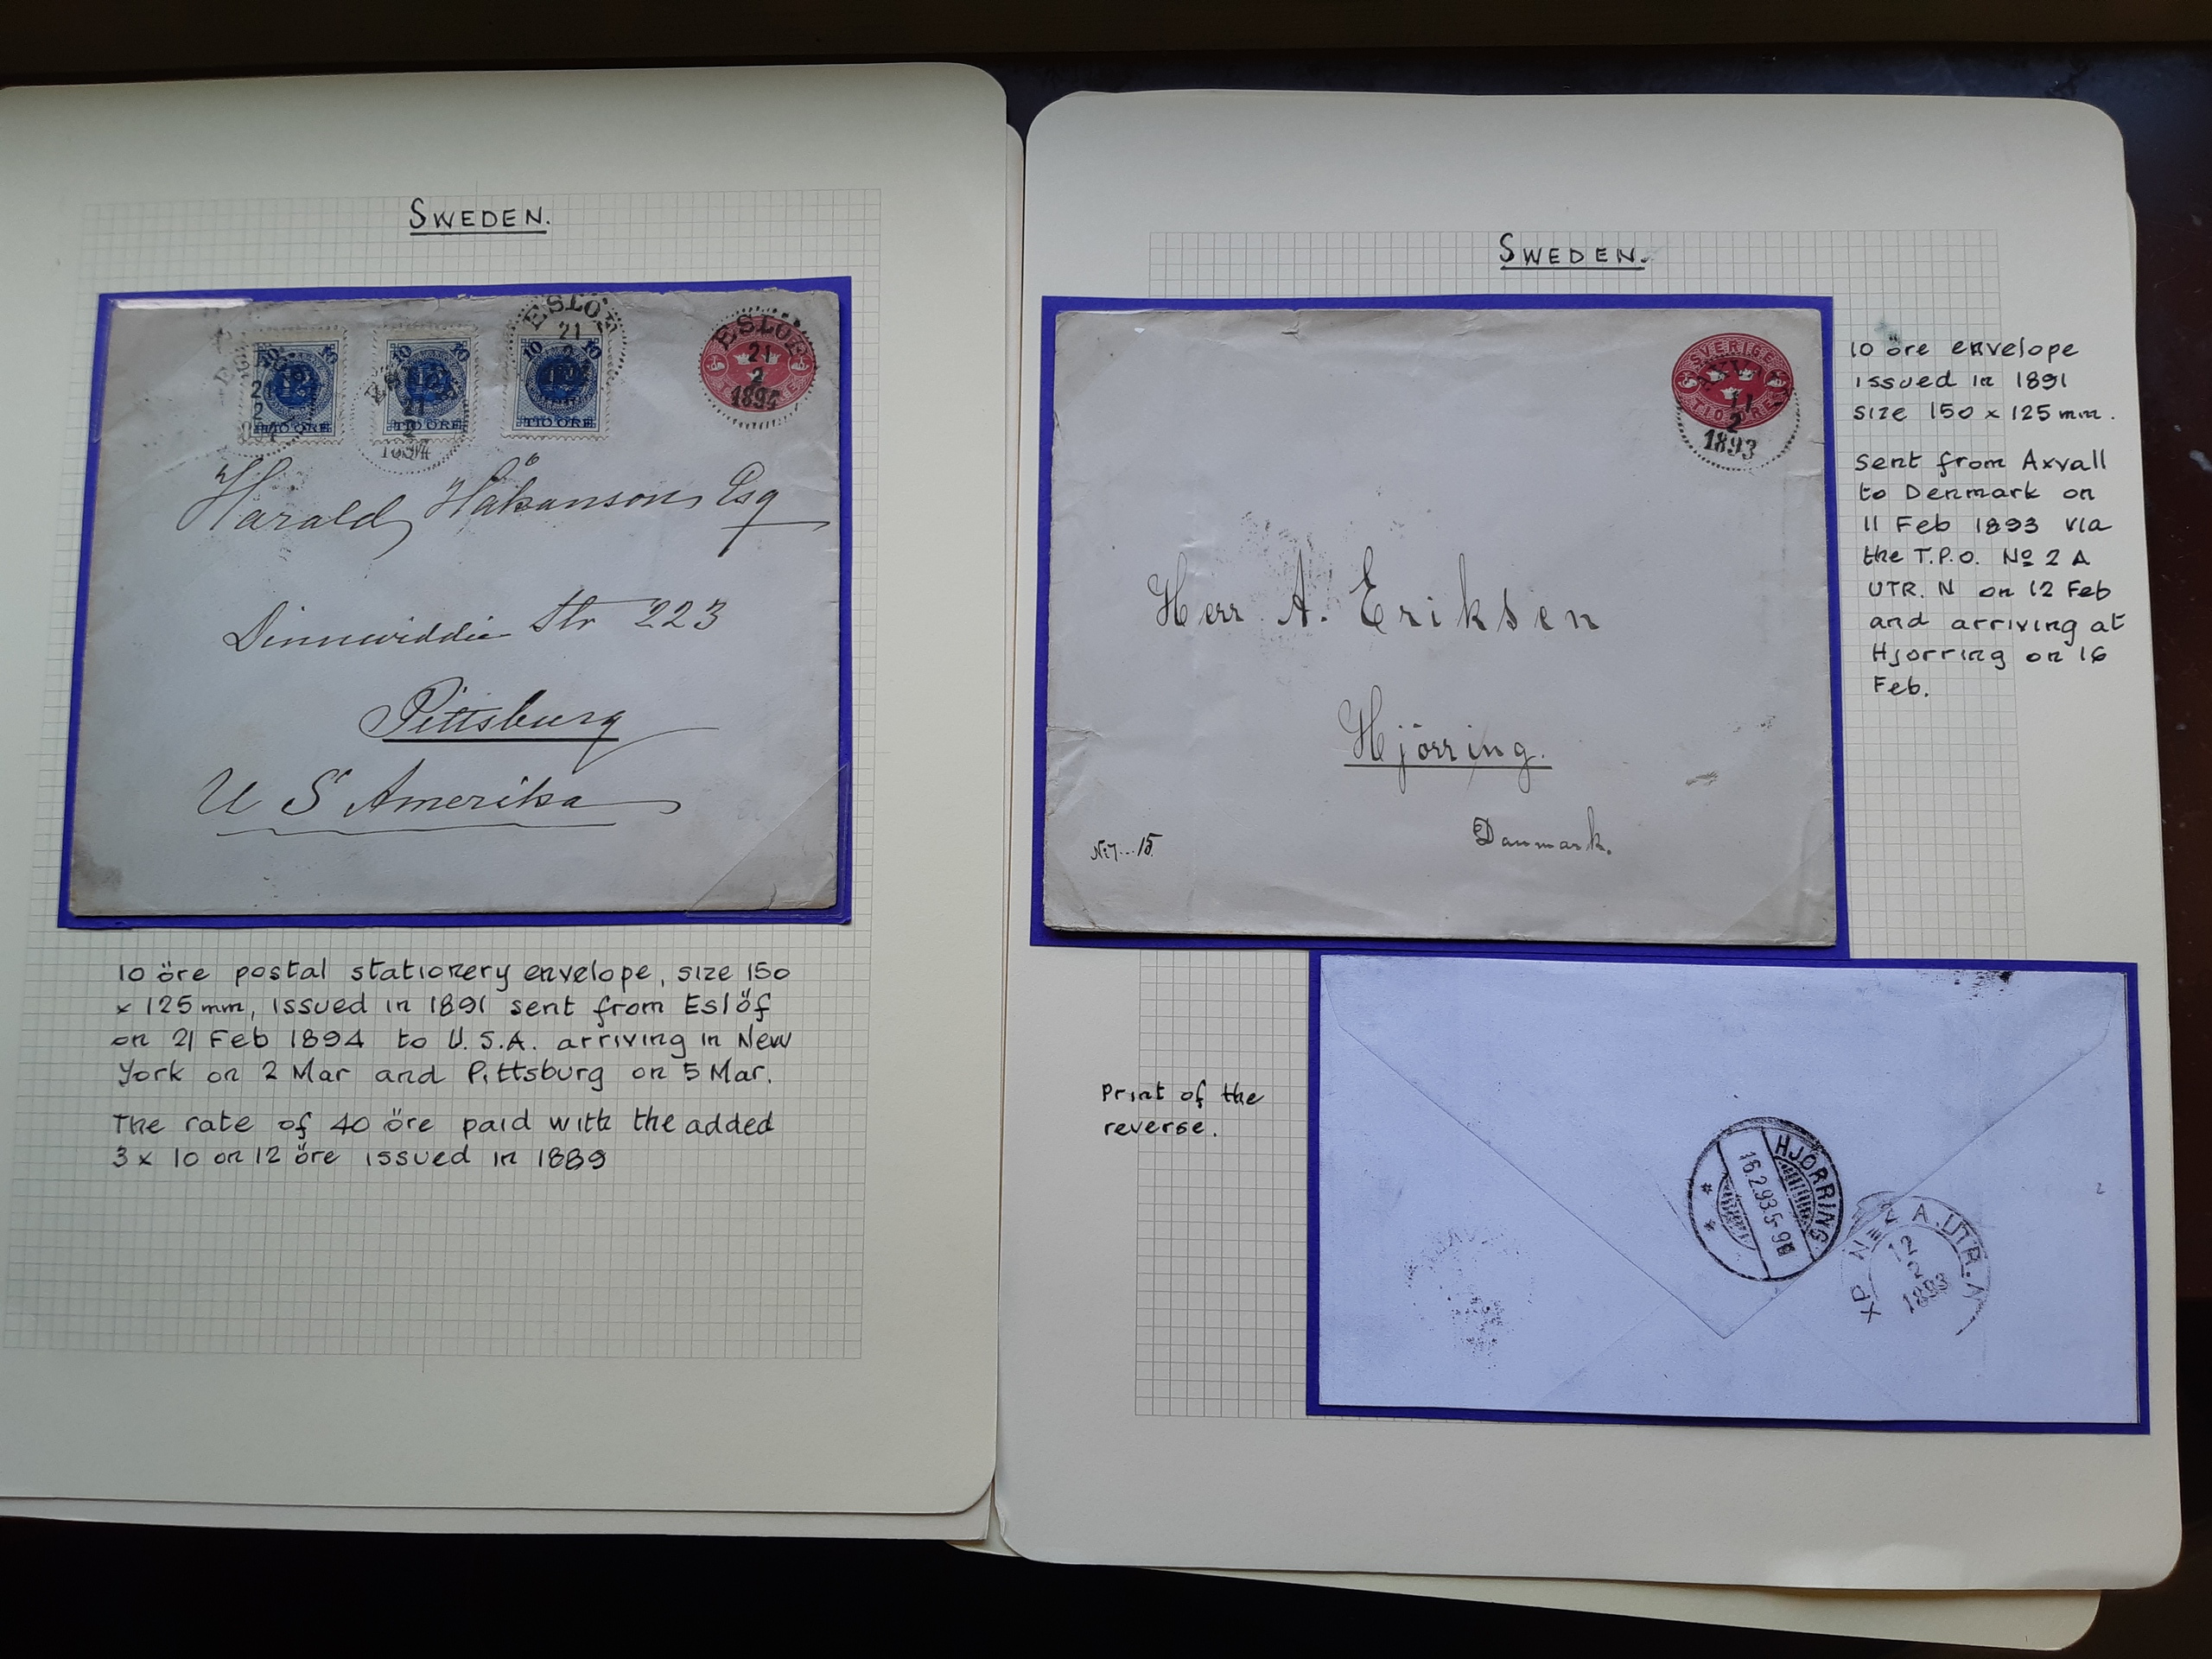 SWEDEN.
10 10
TIO ÖRE
21
2
1894
10 10
TIO ÖRE
ESLÖF
21
2
10 10
TIO ÖRE
ESLÖF
21
2
1894
Harald Håkanson Esq
Dinnwiddie Str 223
Pittsburg
U S Amerika
10 öre postal stationery envelope, size 150
x 125 mm, issued in 1891 sent from Eslöf
on 21 Feb 1894 to U.S.A. arriving in New
York on 2 Mar and Pittsburg on 5 Mar.
The rate of 40 öre paid with the added
3 x 10 on 12 öre issued in 1889
SWEDEN.
SVERIGE
TIO ÖRE
AXVALL
11
2
1893
Herr A. Eriksen
Hjörring.
Danmark.
15
10 öre envelope
issued in 1891
size 150 x 125 mm.
Sent from Axvall
to Denmark on
11 Feb 1893 via
the T.P.O. Nº 2 A
UTR. N on 12 Feb
and arriving at
Hjorring on 16
Feb.
Print of the
reverse.
HJØRRING
16.2.93.5-9
XP Nº 2 A.UTR.N
12
2
1893